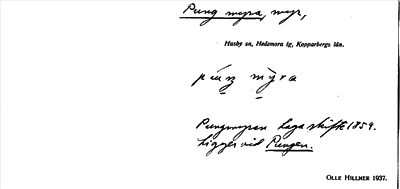 Pung myra, myr,
Husby sn, Hedemora tg, Kopparbergs län.
Pungmyran Laga skifte 1859.
Ligger vid Pungen.
OLLE HILLNER 1937.